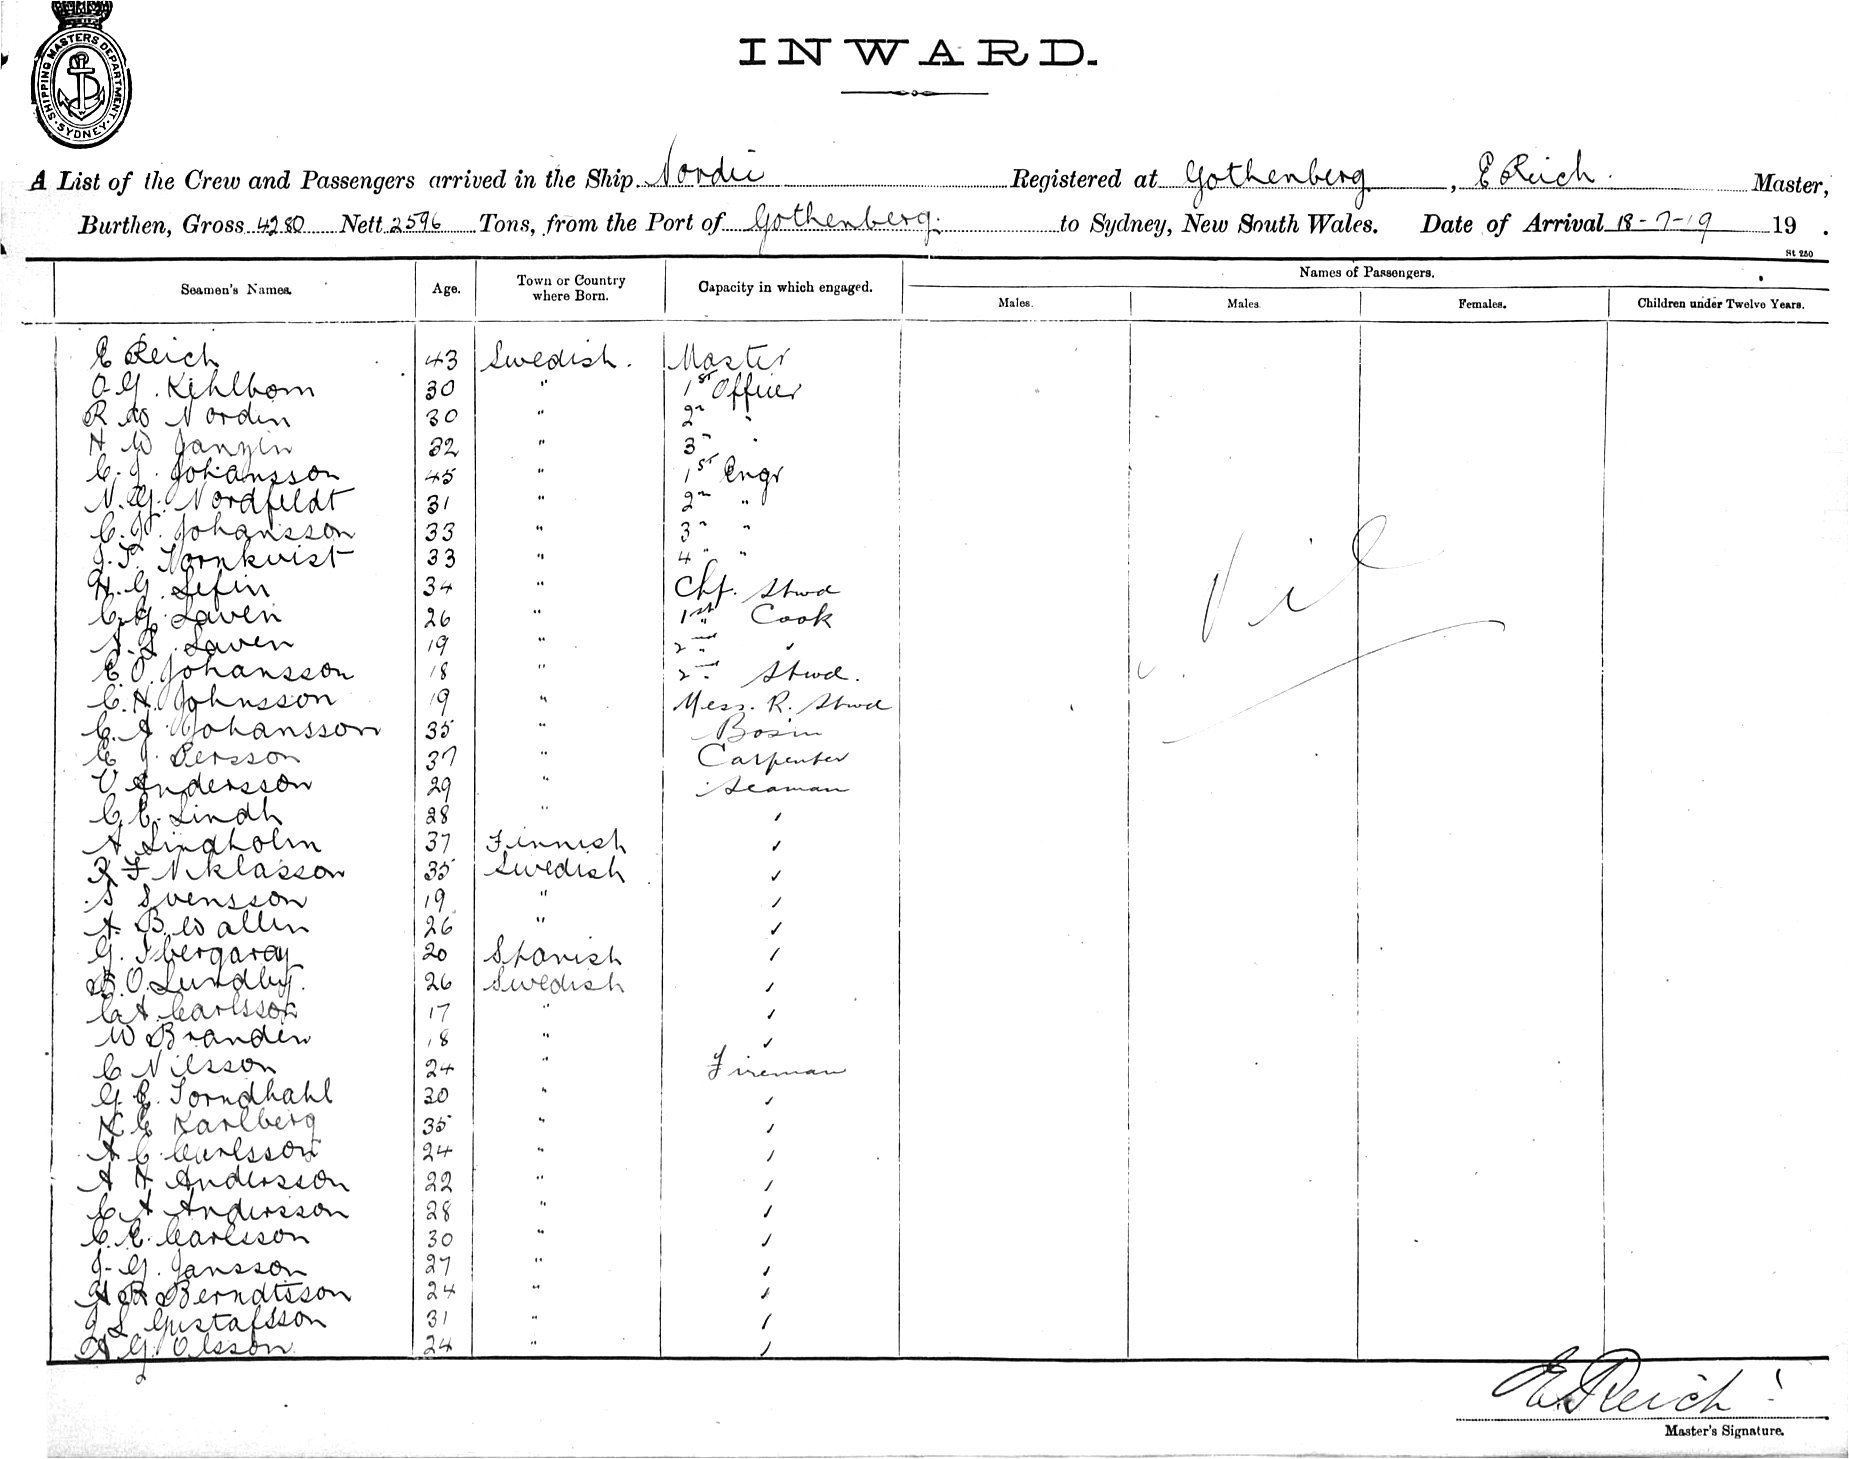 SHIPPING MASTERS DEPARTMENT. SYDNEY
INWARD.
A List of the Crew and Passengers arrived in the Ship Nordic Registered at Gothenberg, E Reich. Master,
Burthen, Gross 4280 Nett 2596 Tons, from the Port of Gothenberg. to Sydney, New South Wales. Date of Arrival 18-7-19 19 .
St 250
Seamen's Names. Age. Town or Country where Born. Capacity in which engaged. Names of Passengers.
Males. Males. Females. Children under Twelve Years.
E Reich 43 Swedish. Master
O. G. Kihlbom 30 " 1st Officer
R W Nordin 30 " 2n "
H W 32 " 3" "
C. J. Johansson 45 " 1st Engr
N. G. Nordfeldt 31 " 2n "
C. J. Johansson 33 " 3" "
J. T. Tornkvist 33 " 4" "
H. G. Lefin 34 " Chf. Stwd
C. G. Laven 26 " 1st Cook
Laven 19 " 2nd "
E. O. Johansson 18 " 2nd Stwd.
C. H. Johnsson 19 " Mess. R. Stwd
C. J Johansson 35 " Bosin
C J. Persson 37 " Carpenter
V Andersson 29 " Seaman
C. E. Lindh 28 " "
A Lindholm 37 Finnish "
R F Niklasson 35 Swedish "
S Svensson 19 " "
A. B. Wallin 26 " "
G. Ibergaray 20 Spanish "
O. Lundby. 26 Swedish "
C A. Carlsson 17 " "
W Brandin 18 " "
C Nilsson 24 " Fireman
G. E. Torndhahl 30 " "
K E Karlberg 35 " "
A C Carlsson 24 " "
A H Andersson 22 " "
C A Andersson 28 " "
C. E. Carlsson 30 " "
J. G. Jansson 27 " "
Berndtsson 24 " "
J L Gustafsson 31 " "
A G. Olsson 24 " "
Nil
E. Reich
Master's Signature.